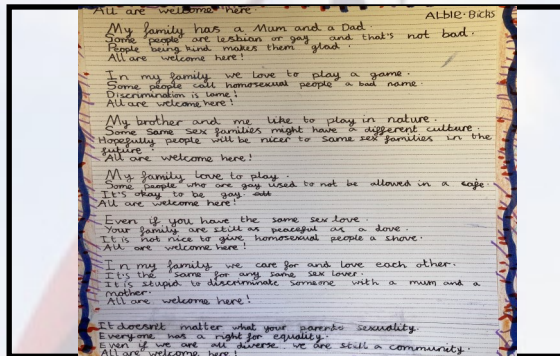 All are welcome here.
ALbie.Bicks
My family has a Mum and a Dad.
Some people are lesbian or gay and that's not bad.
People being kind makes them glad.
All are welcome here!
In my family we love to play a game.
Some people call homosexual people a bad name.
Discrimination is lame!
All are welcome here!
My brother and me like to play in nature.
Some same sex families might have a different culture.
Hopefully people will be nicer to same sex families in the
future.
All are welcome here!
My family love to play.
Some people who are gay used to not be allowed in a safe.
It's okay to be gay
All are welcome here!
Even if you have the same sex love.
Your family are still as peaceful as a dove.
It is not nice to give homosexual people a shove.
All are welcome here!
In my family we care for and love each other.
It's the same for any same sex lover.
It is stupid to discriminate someone with a mum and a
mother.
All are welcome here!
It doesn't matter what your parents sexuality.
Everyone has a right for equality.
Even if we are all diverse we are still a community.
All are welcome here!